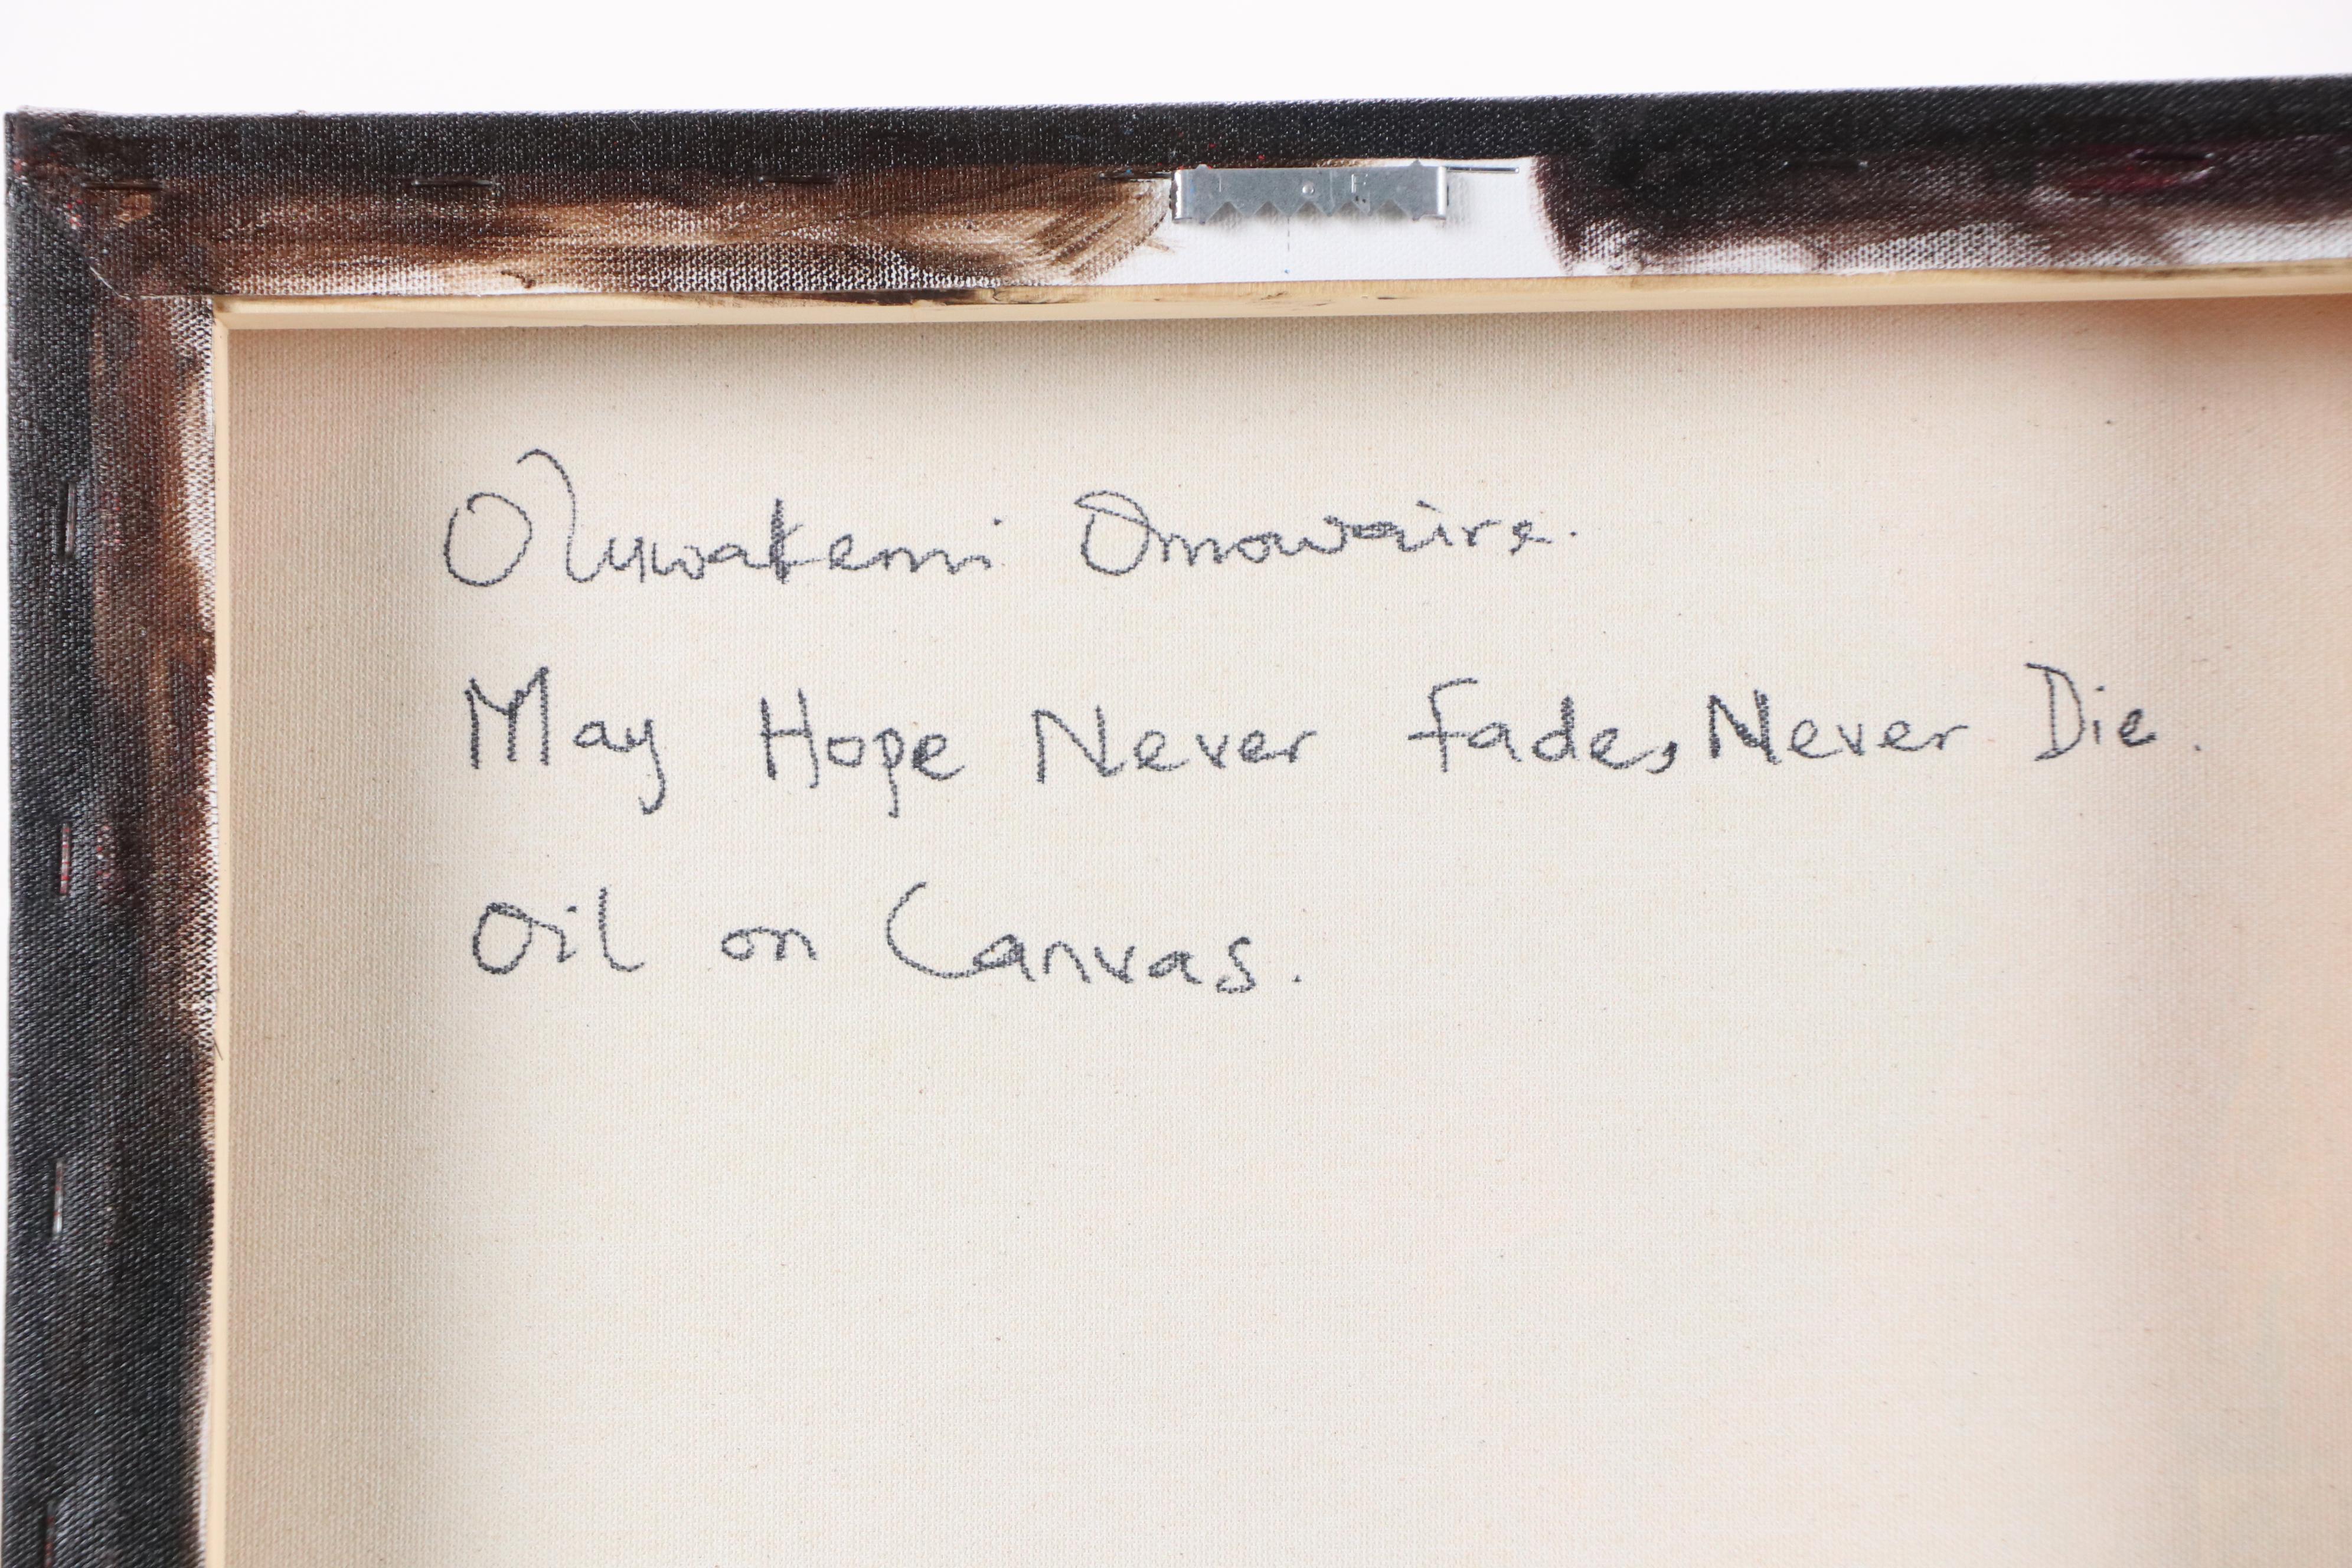 Oluwakemi Omowaire.
May Hope Never Fade, Never Die.
Oil on Canvas.